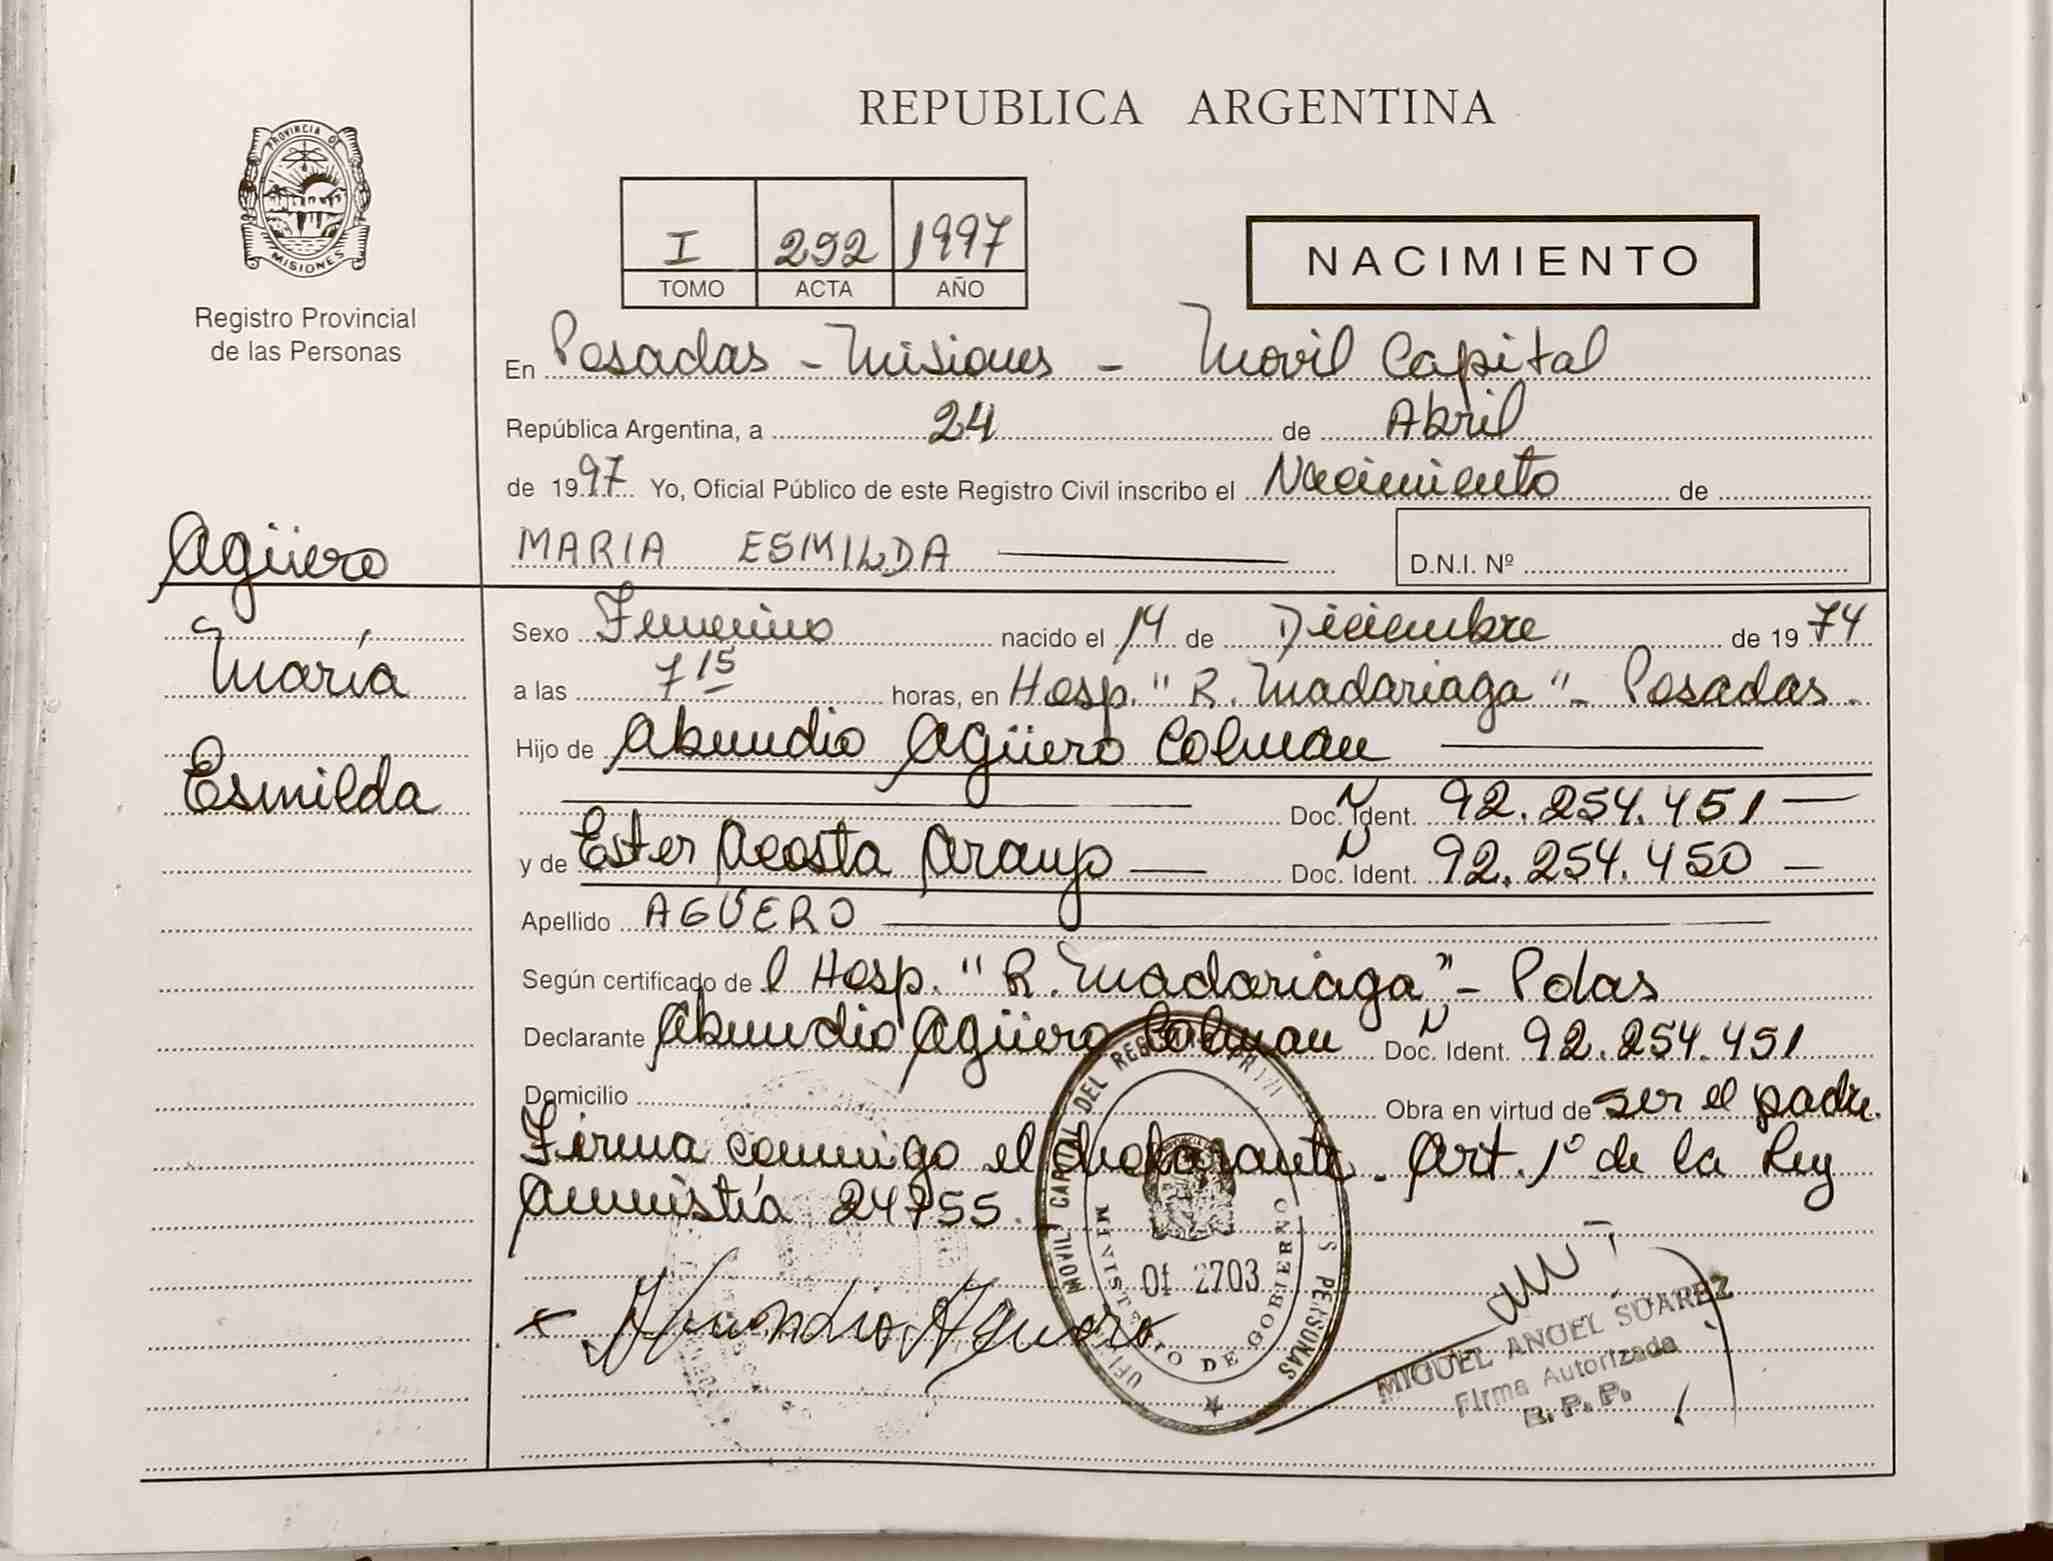 REPUBLICA ARGENTINA
PROVINCIA DE
MISIONES
Registro Provincial
de las Personas
I 292 1997
TOMO ACTA AÑO
NACIMIENTO
En Posadas - Misiones - Movil Capital
República Argentina, a 24 de Abril
de 1997 Yo, Oficial Público de este Registro Civil inscribo el Nacimiento de
MARIA ESMILDA D.N.I. Nº
Agüero
María
Esmilda
Sexo Femenino nacido el 14 de Diciembre de 1974
a las 7 15 horas, en Hosp. "R. Madariaga" - Posadas.
Hijo de Abundio Agüero Colman
Doc. N Ident. 92.254.451
y de Ester Acosta Araujo Doc. N Ident. 92.254.450
Apellido AGÜERO
Según certificado de l Hosp. "R. Madariaga" - Pdas
Declarante Abundio Agüero Colman Doc. N Ident. 92.254.451
Domicilio Obra en virtud de ser el padre.
Firma conmigo el declarante. Art. 1º de la Ley
Amnistía 24755.
Abundio Aguero
MOVIL CAPITAL DEL REG PERSONAS
MINISTERIO DE GOBIERNO
Of 2703
MIGUEL ANGEL SUAREZ
Firma Autorizada
R. P. P.